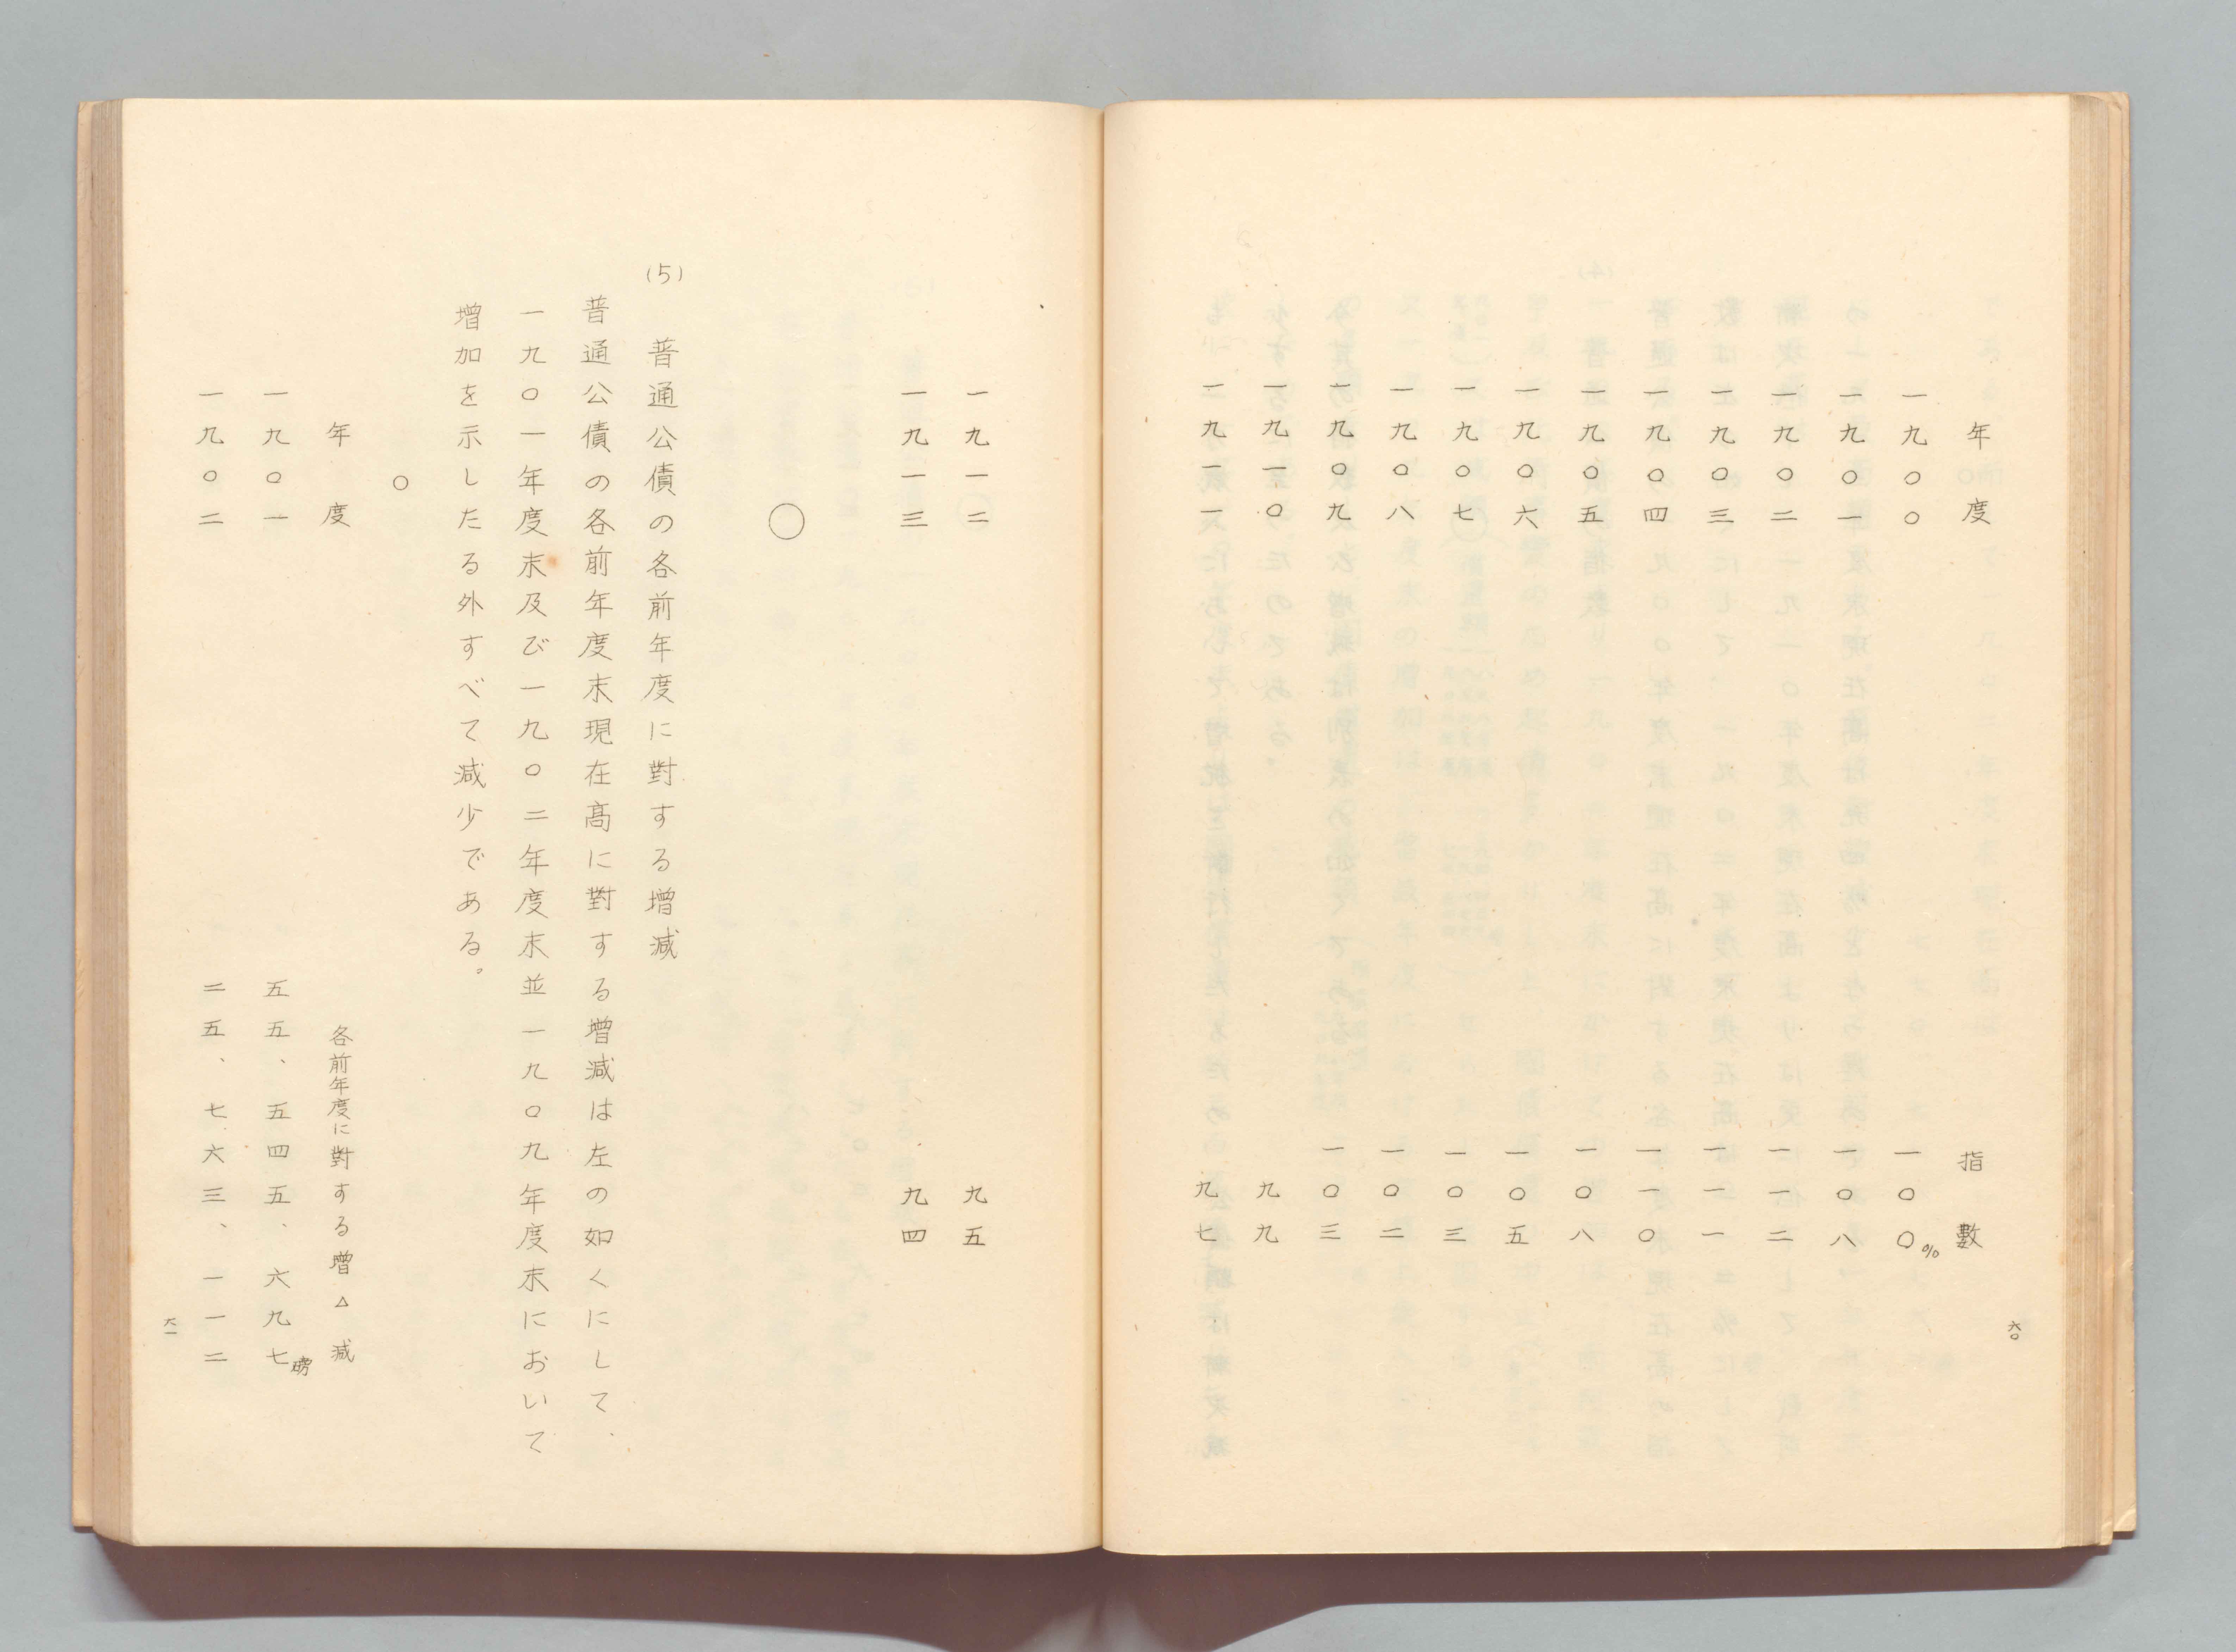 年度 指數
一九〇〇 一〇〇%
一九〇一 一〇八
一九〇二 一一二
一九〇三 一一一
一九〇四 一一〇
一九〇五 一〇八
一九〇六 一〇五
一九〇七 一〇三
一九〇八 一〇二
一九〇九 一〇三
一九一〇 九九
一九一一 九七
六〇
一九一二 九五
一九一三 九四
〇
(5) 普通公債の各前年度に對する増減
普通公債の各前年度末現在高に對する増減は左の如くにして、
一九〇一年度末及び一九〇二年度末並一九〇九年度末において
増加を示したる外すべて減少である。
〇
年度 各前年度に對する増△減
一九〇一 五五、五四五、六九七磅
一九〇二 二五、七六三、一一二
六一